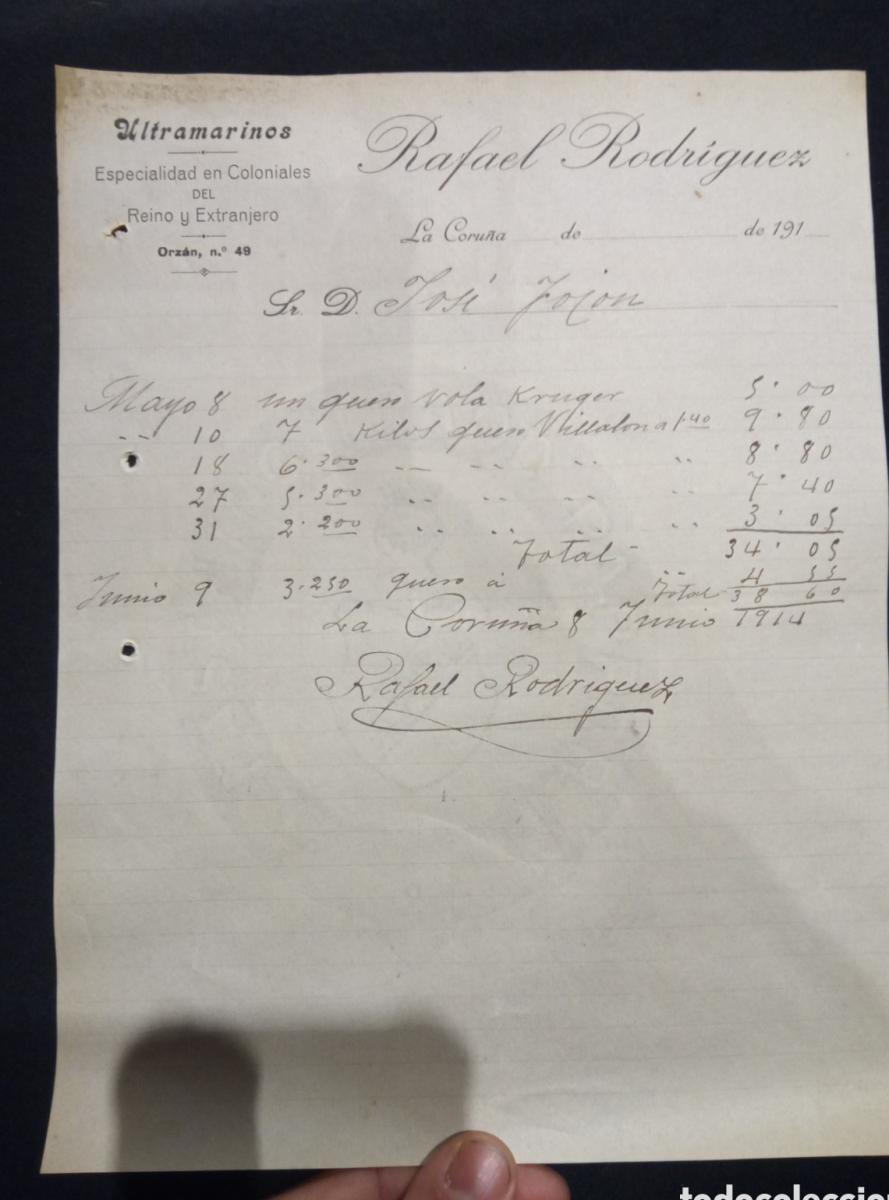 Ultramarinos
Especialidad en Coloniales
DEL
Reino y Extranjero
Orzán, n.º 49
Rafael Rodríguez
La Coruña de de 191
Sr. D. José
Mayo 8 un queso vola Kruger 5·00
10 7 Kilos queso Villalon a 1·40 9·80
18 6·300 8·80
27 5·300 7·40
31 2·200 3·05
Total 34·05
Junio 9 3·250 queso á 4 55
Total 38 60
La Coruña 8 Junio 1914
Rafael Rodriguez
todocoleccion